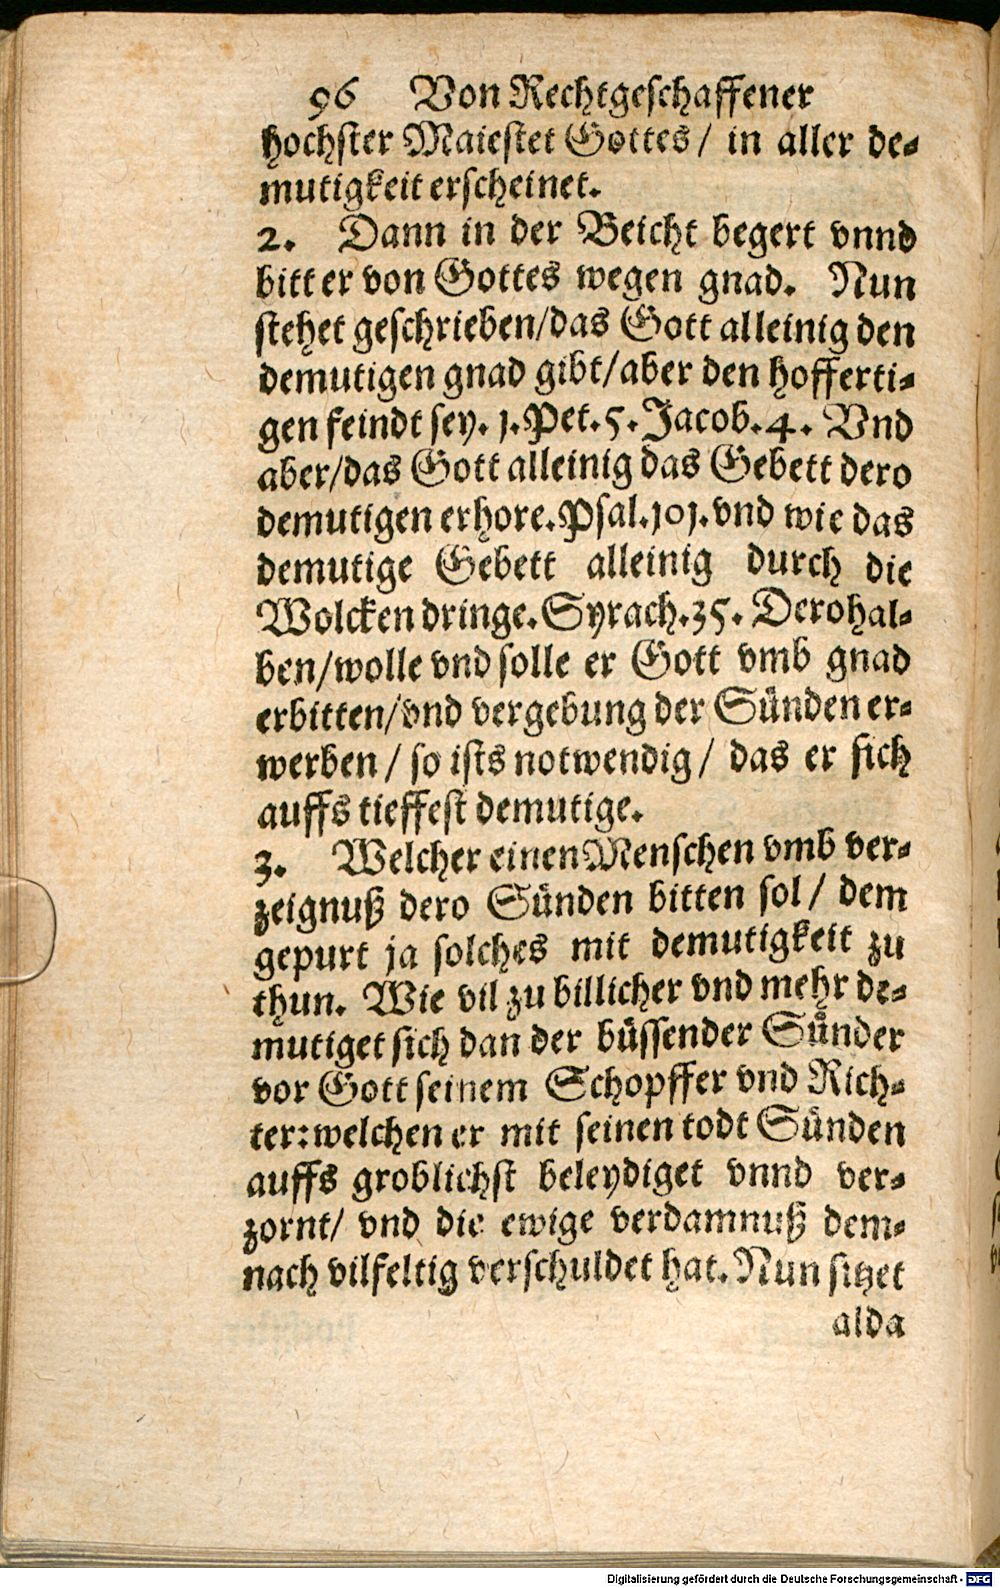 96 Von Rechtgeschaffener
hochster Maiestet Gottes / in aller de-
mutigkeit erscheinet.
2. Dann in der Beicht begert vnnd
bitt er von Gottes wegen gnad. Nun
stehet geschrieben/das Gott alleinig den
demutigen gnad gibt/aber den hofferti-
gen feindt sey. 1. Pet. 5. Jacob. 4. Vnd
aber/das Gott alleinig das Gebett dero
demutigen erhore. Psal. 101. vnd wie das
demutige Gebett alleinig durch die
Wolcken dringe. Syrach. 35. Derohal-
ben/wolle vnd solle er Gott vmb gnad
erbitten/vnd vergebung der Sünden er-
werben / so ists notwendig / das er sich
auffs tieffest demutige.
3. Welcher einen Menschen vmb ver-
zeignuß dero Sünden bitten sol / dem
gepurt ja solches mit demutigkeit zu
thun. Wie vil zu billicher vnd mehr de-
mutiget sich dan der büssender Sünder
vor Gott seinem Schopffer vnd Rich-
ter: welchen er mit seinen todt Sünden
auffs groblichst beleydiget vnnd ver-
zornt/ vnd die ewige verdamnuß dem-
nach vilfeltig verschuldet hat. Nun sitzet
alda
Digitalisierung gefördert durch die Deutsche Forschungsgemeinschaft - DFG